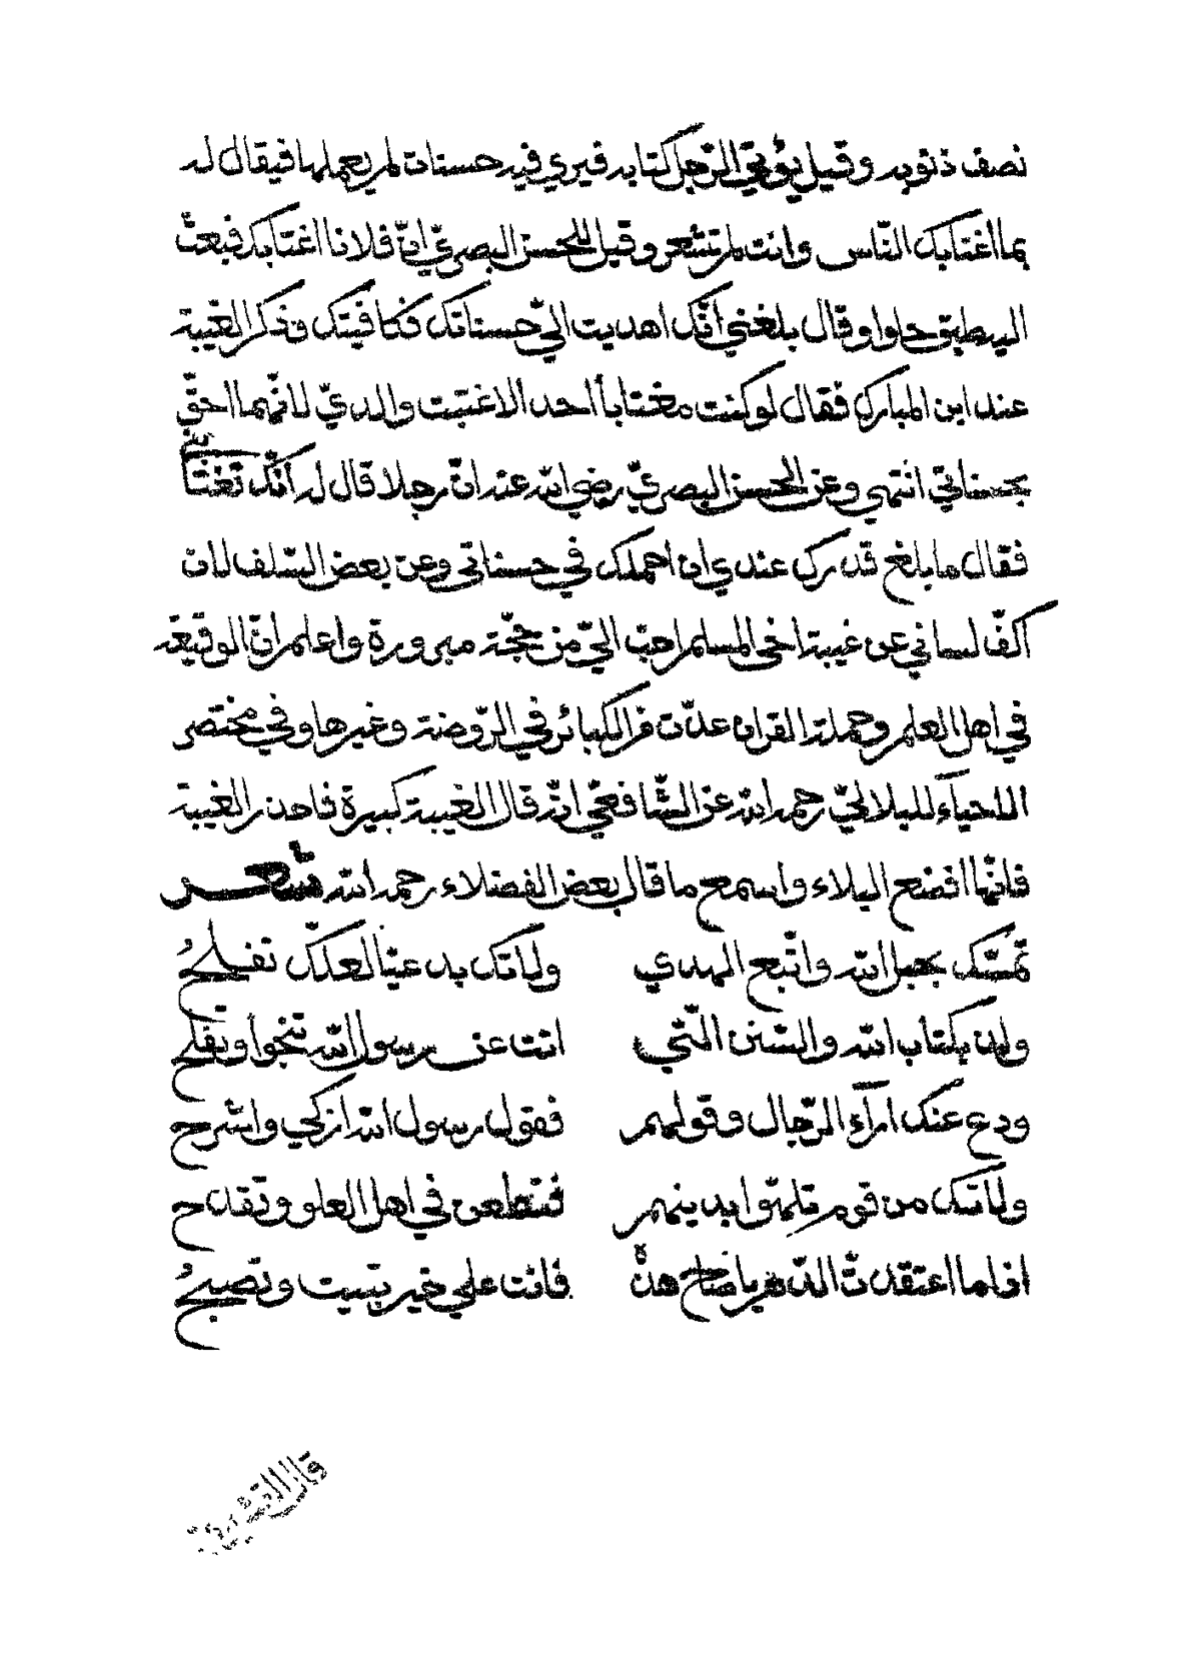 نصف ذنوبه وقيل يؤتى الرّجل كتابه فيري فيه حسنات لم يعملها فيقال له
بما اغتابك النّاس وانت لم تشعر وقيل للحسن البصريّ انّ فلانا اغتابك فبعث
اليه طبق حلوا وقال بلغني انّك اهديت اليّ حسناتك فكافيتك وذكر الغيبة
عند ابن المبارك فقال لو كنت مغتابا أحد الاغتبت والديّ لانّهما احقّ
بحسناتي انتهي وعن الحسن البصريّ رضي الله عنه انّ رجلا قال له انّك تغتابني
فقال ما بلغ قدرك عندي ان احملك في حسناتي وعن بعض السّلف لان
اكفّ لساني عن غيبة اخي المسلم احبّ اليّ من حجّة مبرورة واعلم انّ الوقيعة
في اهل العلم وحملة القران عدّت من الكبائر في الرّوضة وغيرها وفي مختصر
الاحياء للبلاليّ رحمه الله عن الشّافعيّ انّه قال الغيبة كبيرة فاحذر الغيبة
فانّها افضع البلاء واسمع ما قال بعض الفضلاء رحمه الله شعر
تمسّك بحبل الله واتّبع الهدي ولاتك بدعيّا لعلّك تفلحُ
ولذ بكتاب الله والسّنن الّتي اتت عن رسول الله تنجوا وتفلح
ودع عنك آرآء الرّجال وقولهم فقول رسول الله ازكي واشرح
ولاتك من قوم تلهّوا بدينهم فتطعن في اهل العلو وتقدح
اذا ما اعتقدت الدّهر يا صاح هذه فانت علي خير تبيت وتصبحُ
قال القشيري